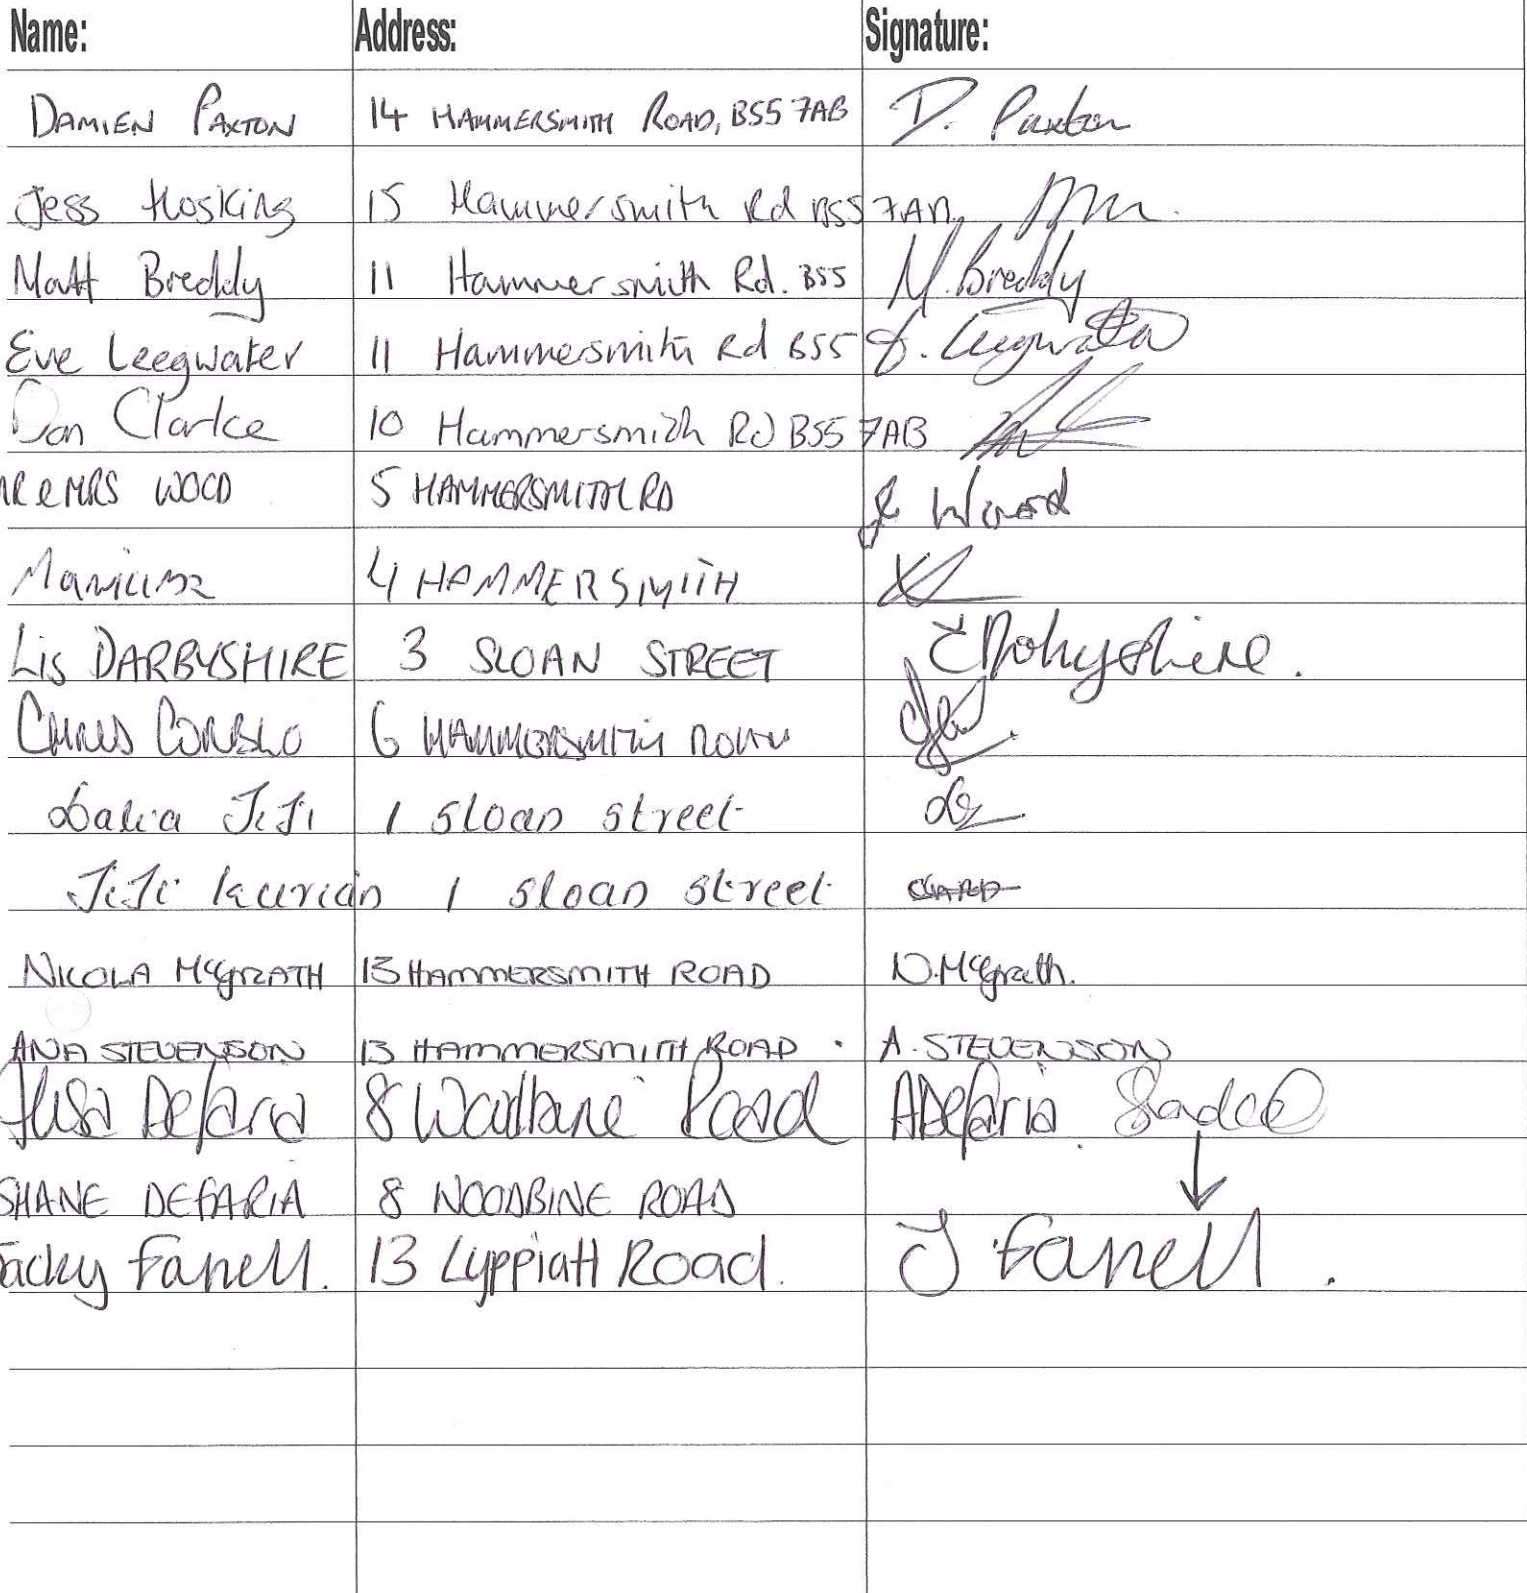 Name: Address: Signature:
DAMIEN PAXTON 14 HAMMERSMITH ROAD, BS5 7AB D. Paxton
Jess Hosking 15 Hammersmith Rd BS5 7AB
Matt Breddy 11 Hammersmith Rd. BS5 M. Breddy
Eve Leegwater 11 Hammersmith Rd BS5 E. Leegwater
Dan Clarke 10 Hammersmith Rd BS5 7AB
MR & MRS WOOD 5 HAMMERSMITH RD J Wood
4 HAMMERSMITH
Lis DARBYSHIRE 3 SLOAN STREET E Darbyshire.
CHRIS 6 HAMMERSMITH ROAD
Dalia JiJi 1 sloan street
JiJi kurian 1 sloan street
NICOLA McGRATH 13 HAMMERSMITH ROAD N. McGrath.
ANA STEVENSON 13 HAMMERSMITH ROAD . A. STEVENSON
Defaria 8 Woodbine Road ADefaria
SHANE DEFARIA 8 WOODBINE ROAD
Jacky Farrell. 13 Lyppiatt Road. J Farrell.